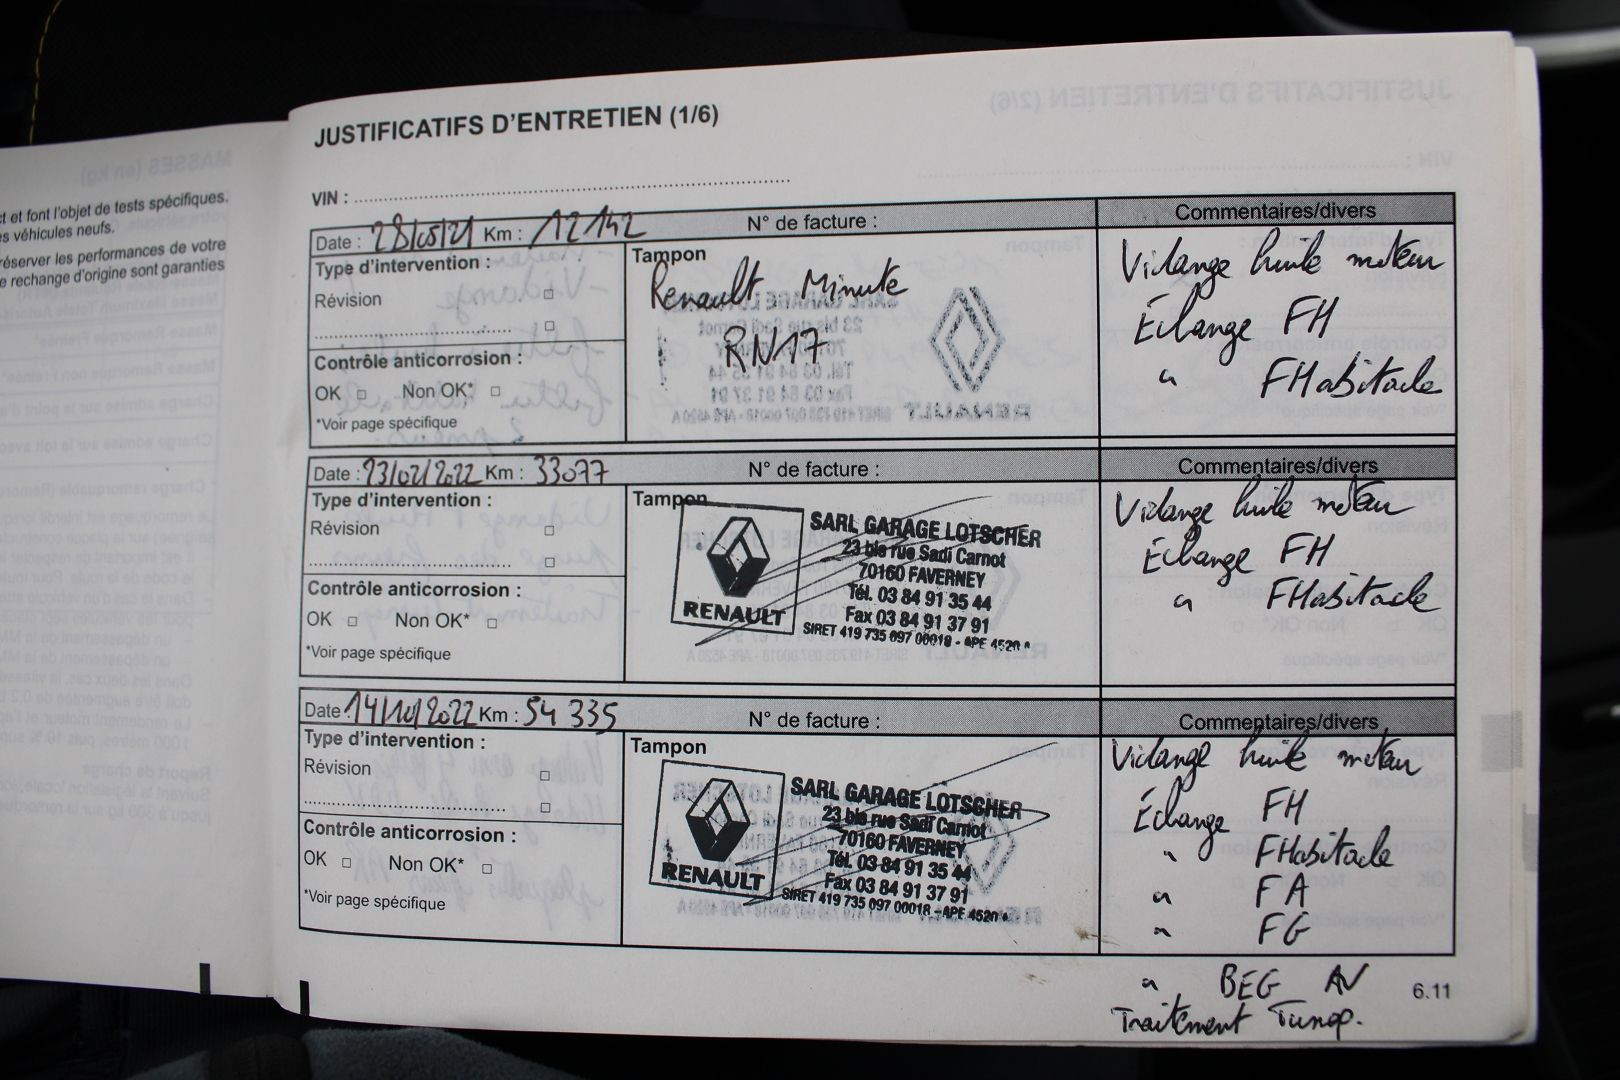 ct et font l'objet de tests spécifiques.
es véhicules neufs.
réserver les performances de votre
e rechange d'origine sont garanties
JUSTIFICATIFS D'ENTRETIEN (1/6)
VIN :
Date : 28/05/21 Km : 12142 N° de facture : Commentaires/divers
Type d'intervention :
Révision
Contrôle anticorrosion :
OK □ Non OK* □
*Voir page spécifique
Tampon
Renault Minute
RN17
Vidange huile moteur
Échange FH
" FHabitacle
Date : 23/02/2022 Km : 33077 N° de facture : Commentaires/divers
Type d'intervention :
Révision
Contrôle anticorrosion :
OK □ Non OK* □
*Voir page spécifique
Tampon
RENAULT
SARL GARAGE LOTSCHER
23 bis rue Sadi Carnot
70160 FAVERNEY
Tél. 03 84 91 35 44
Fax 03 84 91 37 91
SIRET 419 735 097 00018 - APE 4520 A
Vidange huile moteur
Échange FH
" FHabitacle
Date : 14/10/2022 Km : 54 335 N° de facture : Commentaires/divers
Type d'intervention :
Révision
Contrôle anticorrosion :
OK □ Non OK* □
*Voir page spécifique
Tampon
RENAULT
SARL GARAGE LOTSCHER
23 bis rue Sadi Carnot
70160 FAVERNEY
Tél. 03 84 91 35 44
Fax 03 84 91 37 91
SIRET 419 735 097 00018 - APE 4520 A
Vidange huile moteur
Échange FH
" FHabitacle
" FA
" FG
" BEG AV
Traitement Tunap.
6.11